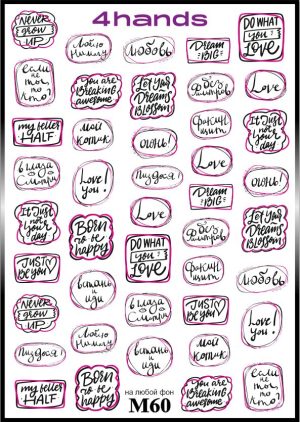 4hands
NEVER
GROW
UP
Люблю
Любовь
Dream
BIG
DO WHAT
you
Love
если
не
ты
то
кто?
You are
Breaking
awesome
Let Your
Dreams
Blossom
без
фильтров
Love
my better
HALF
мой
котик
огонь!
It Just
not
your
day
в глаза
смотри
Love
you!
Love
Dream
BIG
огонь!
It Just
not
your
day
Born
to be
happy
DO WHAT
you
Love
без
фильтров
Let Your
Dreams
Blossom
JUST
Be you
встань
и
иди
Любовь
NEVER
GROW
UP
в глаза
смотри
Love
you!
встань
и
иди
мой
котик
my better
HALF
Born
to be
happy
You are
Breaking
awesome
JUST
Be you
если
не
ты
то
кто?
на любой фон
M60